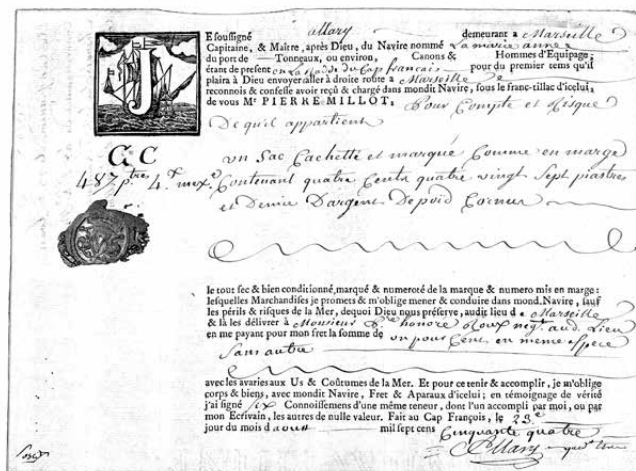 JE soussigné Allary demeurant a Marseille
Capitaine, & Maître, après Dieu, du Navire nommé La marie anne
du port de — Tonneaux, ou environ, Canons & Hommes d'Equipage;
étant de present en La Rade du Cap francais pour du premier tems qu'il
plaira à Dieu envoyer aller à droite route a Marseille
reconnois & confesse avoir reçu & chargé dans mondit Navire, sous le franc-tillac d'icelui,
de vous Mr PIERRE MILLOT, Pour Compte et Risque
De qu'il appartient
CC
un Sac Cachette et marqué Comme en marge
487 ptres 4 Contenant quatre Cents quatre vingt Sept piastres
et Demie D'argent De poid Cornus
le tout sec & bien conditionné, marqué & numeroté de la marque & numero mis en marge:
lesquelles Marchandises je promets & m'oblige mener & conduire dans mond. Navire, sauf
les périls & risques de la Mer, dequoi Dieu nous préserve, audit lieu de Marseille
& là les délivrer à Monsieur honoré Roux negt. aud. Lieu
en me payant pour mon fret la somme de un pour Cent en meme espece
Sans autre
avec les avaries aux Us & Coûtumes de la Mer. Et pour ce tenir & accomplir, je m'oblige
corps & biens, avec mondit Navire, Fret & Aparaux d'icelui; en témoignage de vérité
j'ai signé six Connoissemens d'une même teneur, dont l'un accompli par moi, ou par
mon Ecrivain, les autres de nulle valeur. Fait au Cap François, le 23e
jour du mois d aoust mil sept cens Cinquante quatre
Allary